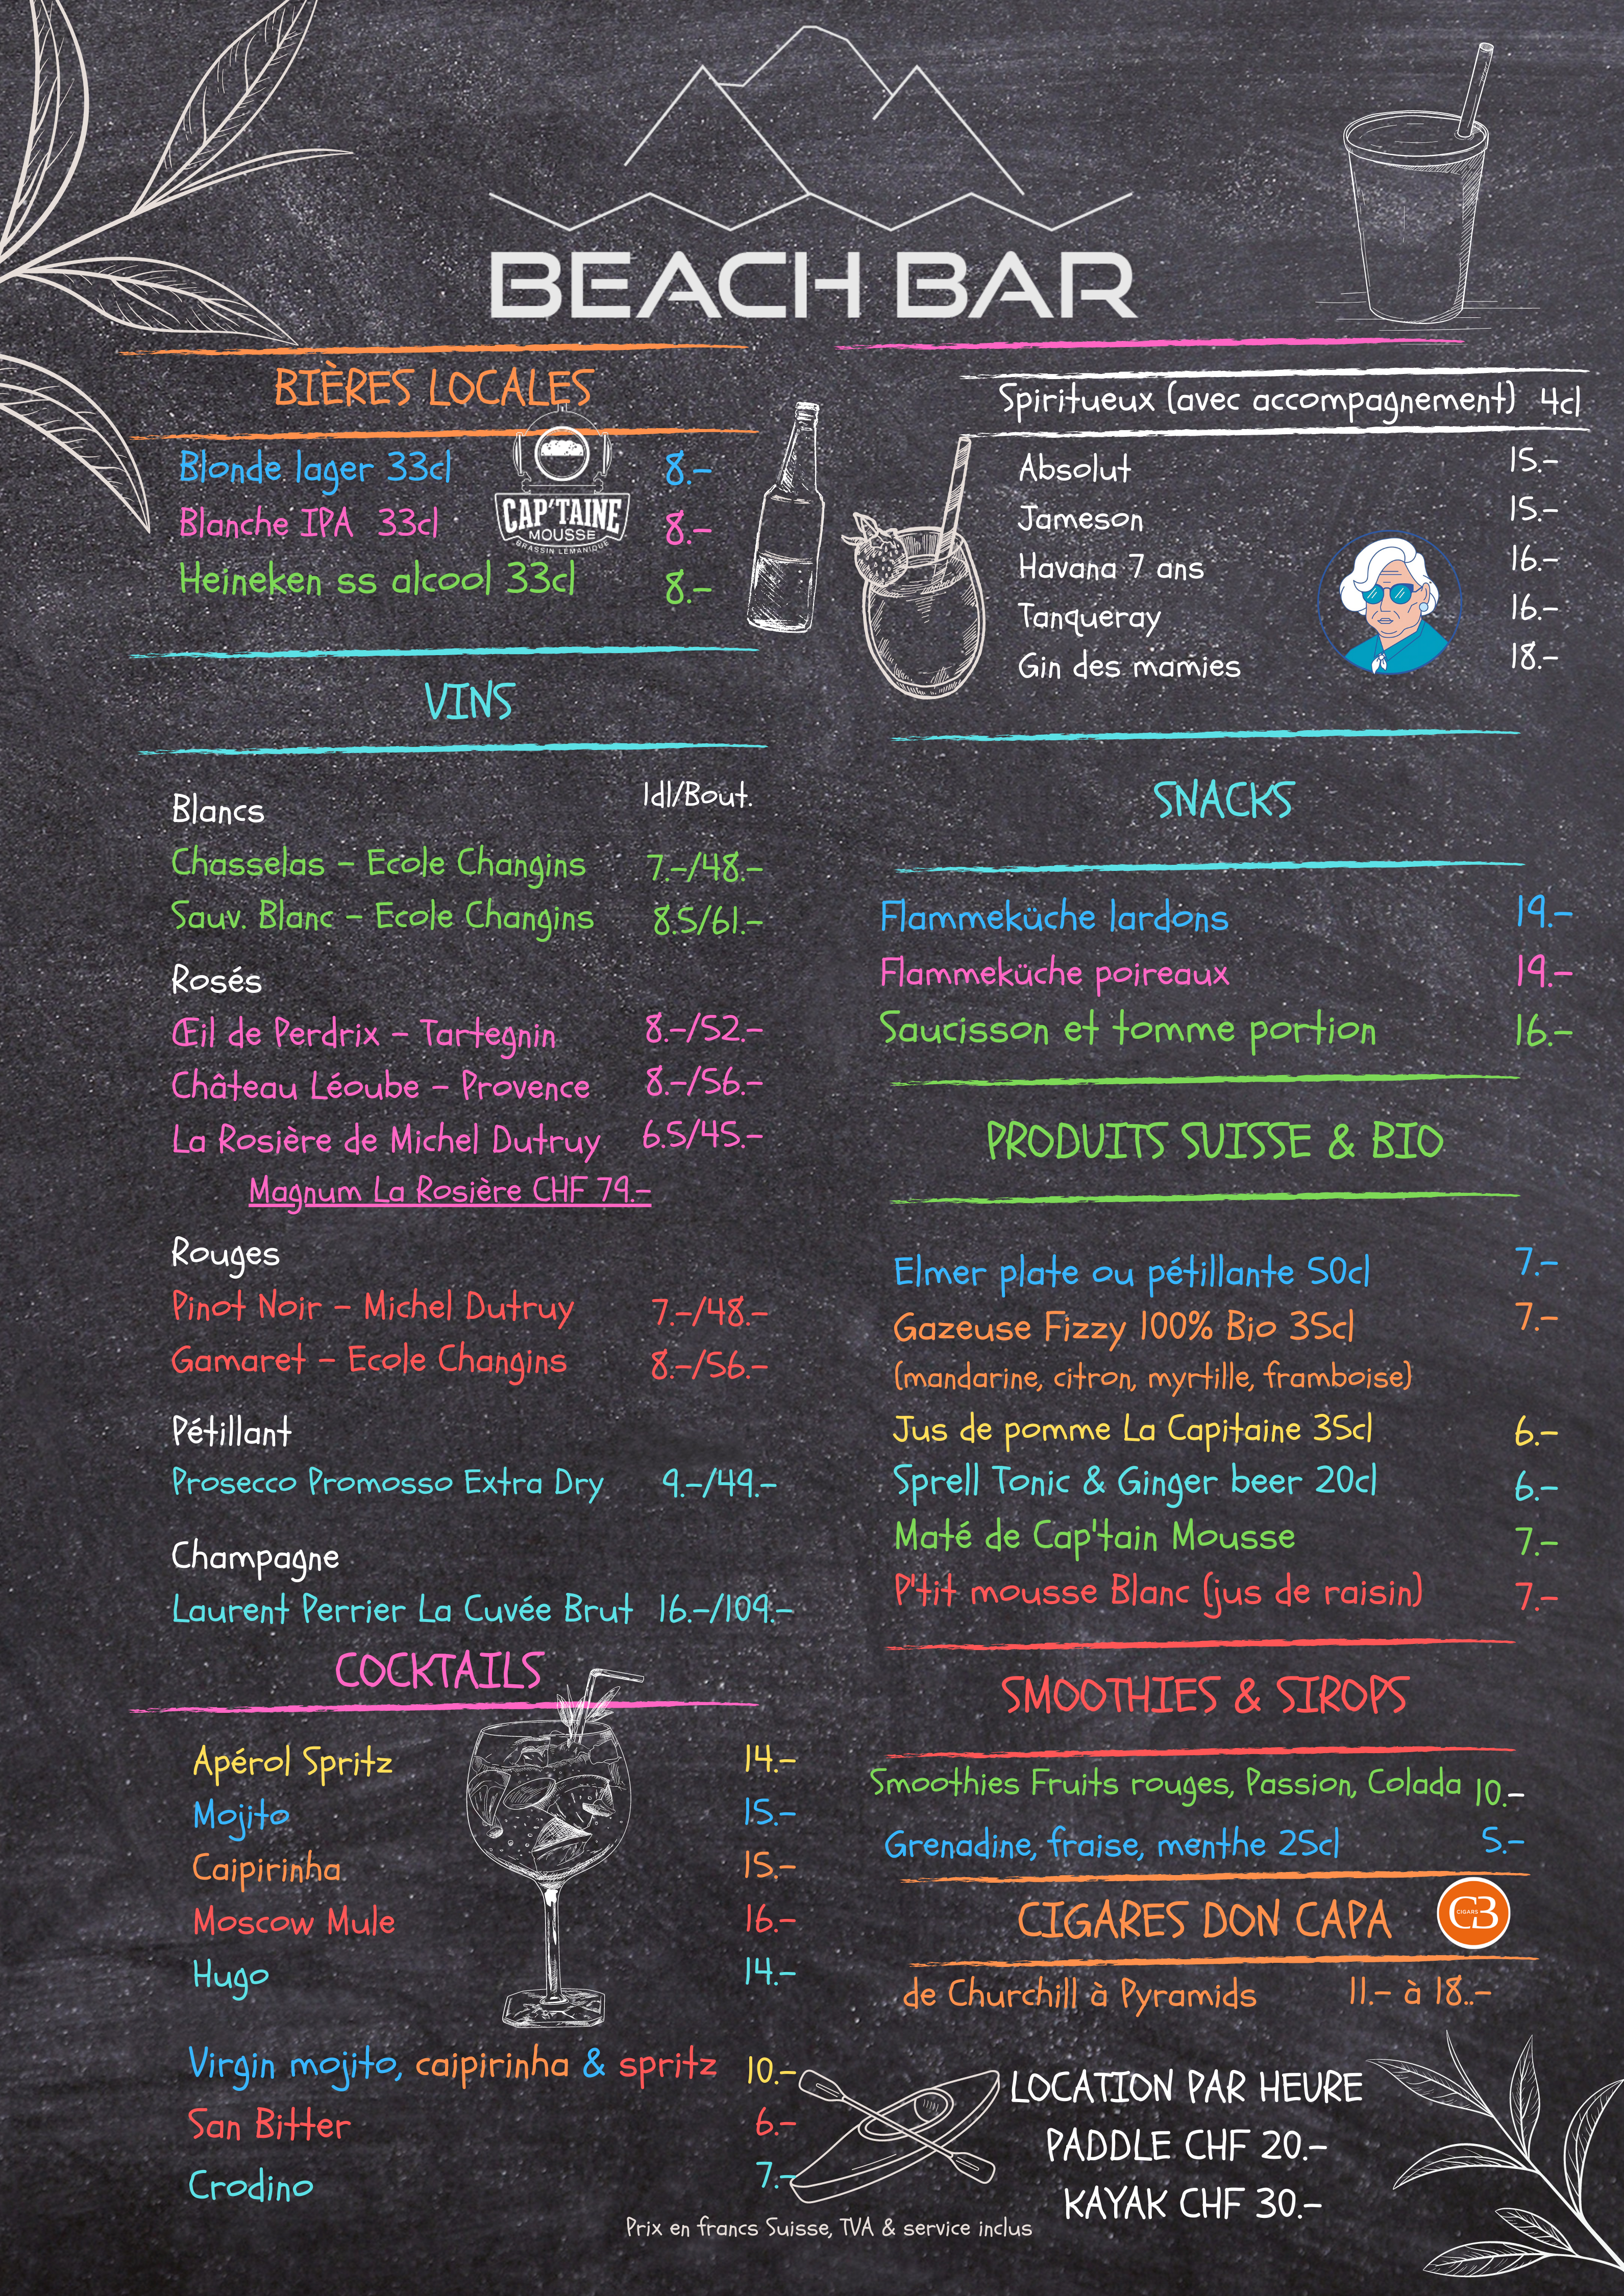 BEACH BAR
BIÈRES LOCALES
Blonde lager 33cl 8.-
Blanche IPA 33cl 8.-
Heineken ss alcool 33cl 8.-
CAP'TAINE
MOUSSE
BRASSIN LÉMANIQUE
VINS
1dl/Bout.
Blancs
Chasselas - Ecole Changins 7.-/48.-
Sauv. Blanc - Ecole Changins 8.5/61.-
Rosés
Œil de Perdrix - Tartegnin 8.-/52.-
Château Léoube - Provence 8.-/56.-
La Rosière de Michel Dutruy 6.5/45.-
Magnum La Rosière CHF 79.-
Rouges
Pinot Noir - Michel Dutruy 7.-/48.-
Gamaret - Ecole Changins 8.-/56.-
Pétillant
Prosecco Promosso Extra Dry 9.-/49.-
Champagne
Laurent Perrier La Cuvée Brut 16.-/109.-
COCKTAILS
Apérol Spritz 14.-
Mojito 15.-
Caipirinha 15.-
Moscow Mule 16.-
Hugo 14.-
Virgin mojito, caipirinha & spritz 10.-
San Bitter 6.-
Crodino 7.-
Spiritueux (avec accompagnement) 4cl
Absolut 15.-
Jameson 15.-
Havana 7 ans 16.-
Tanqueray 16.-
Gin des mamies 18.-
SNACKS
Flammeküche lardons 19.-
Flammeküche poireaux 19.-
Saucisson et tomme portion 16.-
PRODUITS SUISSE & BIO
Elmer plate ou pétillante 50cl 7.-
Gazeuse Fizzy 100% Bio 35cl 7.-
(mandarine, citron, myrtille, framboise)
Jus de pomme La Capitaine 35cl 6.-
Sprell Tonic & Ginger beer 20cl 6.-
Maté de Cap'tain Mousse 7.-
P'tit mousse Blanc (jus de raisin) 7.-
SMOOTHIES & SIROPS
Smoothies Fruits rouges, Passion, Colada 10.-
Grenadine, fraise, menthe 25cl 5.-
CIGARES DON CAPA
CIGARS
CB
de Churchill à Pyramids 11.- à 18..-
LOCATION PAR HEURE
PADDLE CHF 20.-
KAYAK CHF 30.-
Prix en francs Suisse, TVA & service inclus